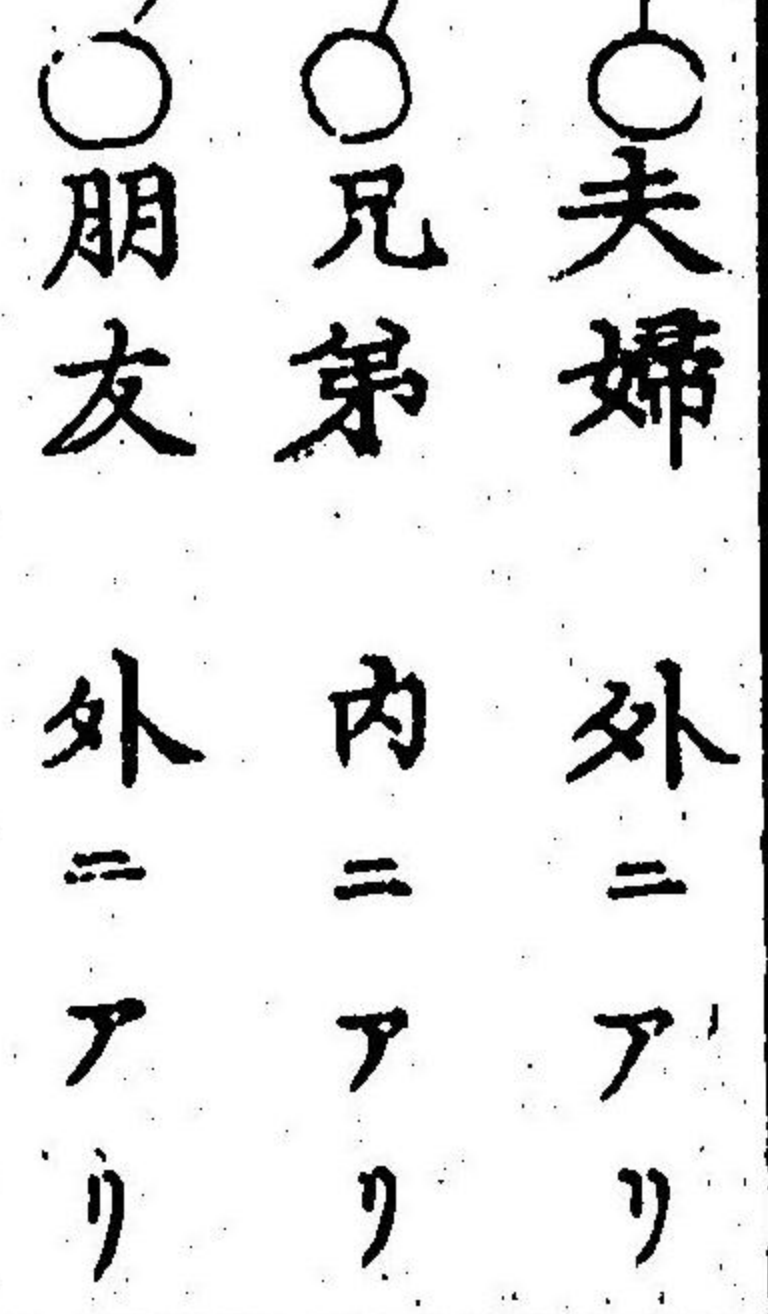 夫婦 外ニアリ
兄弟 内ニアリ
朋友 外ニアリ